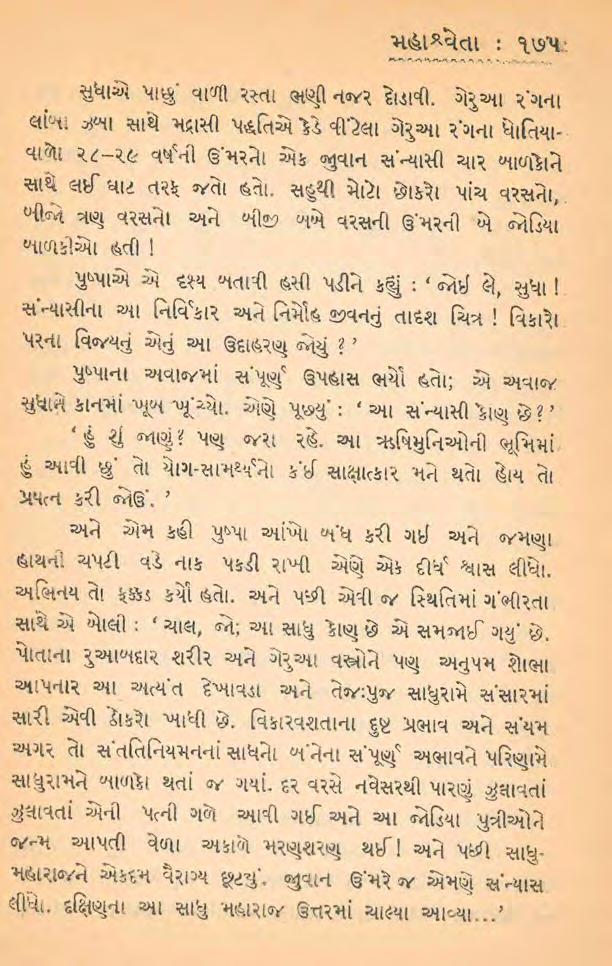 મહાશ્વેતા : ૧૭૫
સુધાએ પાછું વાળી રસ્તા ભણી નજર દોડાવી. ગેરુઆ રંગના
લાંબા ઝબા સાથે મદ્રાસી પદ્ધતિએ કેડે વીંટેલા ગેરુઆ રંગના ધોતિયા-
વાળો ૨૮–૨૯ વર્ષની ઉંમરનો એક જુવાન સંન્યાસી ચાર બાળકોને
સાથે લઈ ઘાટ તરફ જતો હતો. સહુથી મોટો છોકરો પાંચ વરસનો,
બીજો ત્રણ વરસનો અને બીજી બબે વરસની ઉંમરની બે જોડિયા
બાળકીઓ હતી !
પુષ્પાએ એ દૃશ્ય બતાવી હસી પડીને કહ્યું : ‘ જોઈ લે, સુધા !
સંન્યાસીના આ નિર્વિકાર અને નિર્મોહ જીવનનું તાદશ ચિત્ર ! વિકારો
પરના વિજયનું એનું આ ઉદાહરણ જોયું ? ’
પુષ્પાના અવાજમાં સંપૂર્ણ ઉપહાસ ભર્યો હતો; એ અવાજ
સુધાને કાનમાં ખૂબ ખૂંચ્યો. એણે પૂછ્યું : ‘ આ સંન્યાસી કોણ છે ? ’
‘ હું શું જાણું ? પણ જરા રહે. આ ઋષિમુનિઓની ભૂમિમાં
હું આવી છું તો યોગ-સામર્થ્યનો કંઈ સાક્ષાત્કાર મને થતો હોય તો
પ્રયત્ન કરી જોઉં. ’
અને એમ કહી પુષ્પા આંખો બંધ કરી ગઈ અને જમણા
હાથની ચપટી વડે નાક પકડી રાખી એણે એક દીર્ઘ શ્વાસ લીધો.
અભિનય તો ફક્કડ કર્યો હતો. અને પછી એવી જ સ્થિતિમાં ગંભીરતા
સાથે એ બોલી : ‘ ચાલ, જો; આ સાધુ કોણ છે એ સમજાઈ ગયું છે.
પોતાના રુઆબદાર શરીર અને ગેરુઆ વસ્ત્રોને પણ અનુપમ શોભા
આપનાર આ અત્યંત દેખાવડા અને તેજઃપુંજ સાધુરામે સંસારમાં
સારી એવી ઠોકરો ખાધી છે. વિકારવશતાના દુષ્ટ પ્રભાવ અને સંયમ
અગર તો સંતતિનિયમનનાં સાધનો બંનેના સંપૂર્ણ અભાવને પરિણામે
સાધુરામને બાળકો થતાં જ ગયાં. દર વરસે નવેસરથી પારણું ઝુલાવતાં
ઝુલાવતાં એની પત્ની ગળે આવી ગઈ અને આ જોડિયા પુત્રીઓને
જન્મ આપતી વેળા અકાળે મરણશરણ થઈ ! અને પછી સાધુ-
મહારાજને એકદમ વૈરાગ્ય છૂટ્યું. જુવાન ઉંમરે જ એમણે સંન્યાસ
લીધો. દક્ષિણના આ સાધુ મહારાજ ઉત્તરમાં ચાલ્યા આવ્યા...’